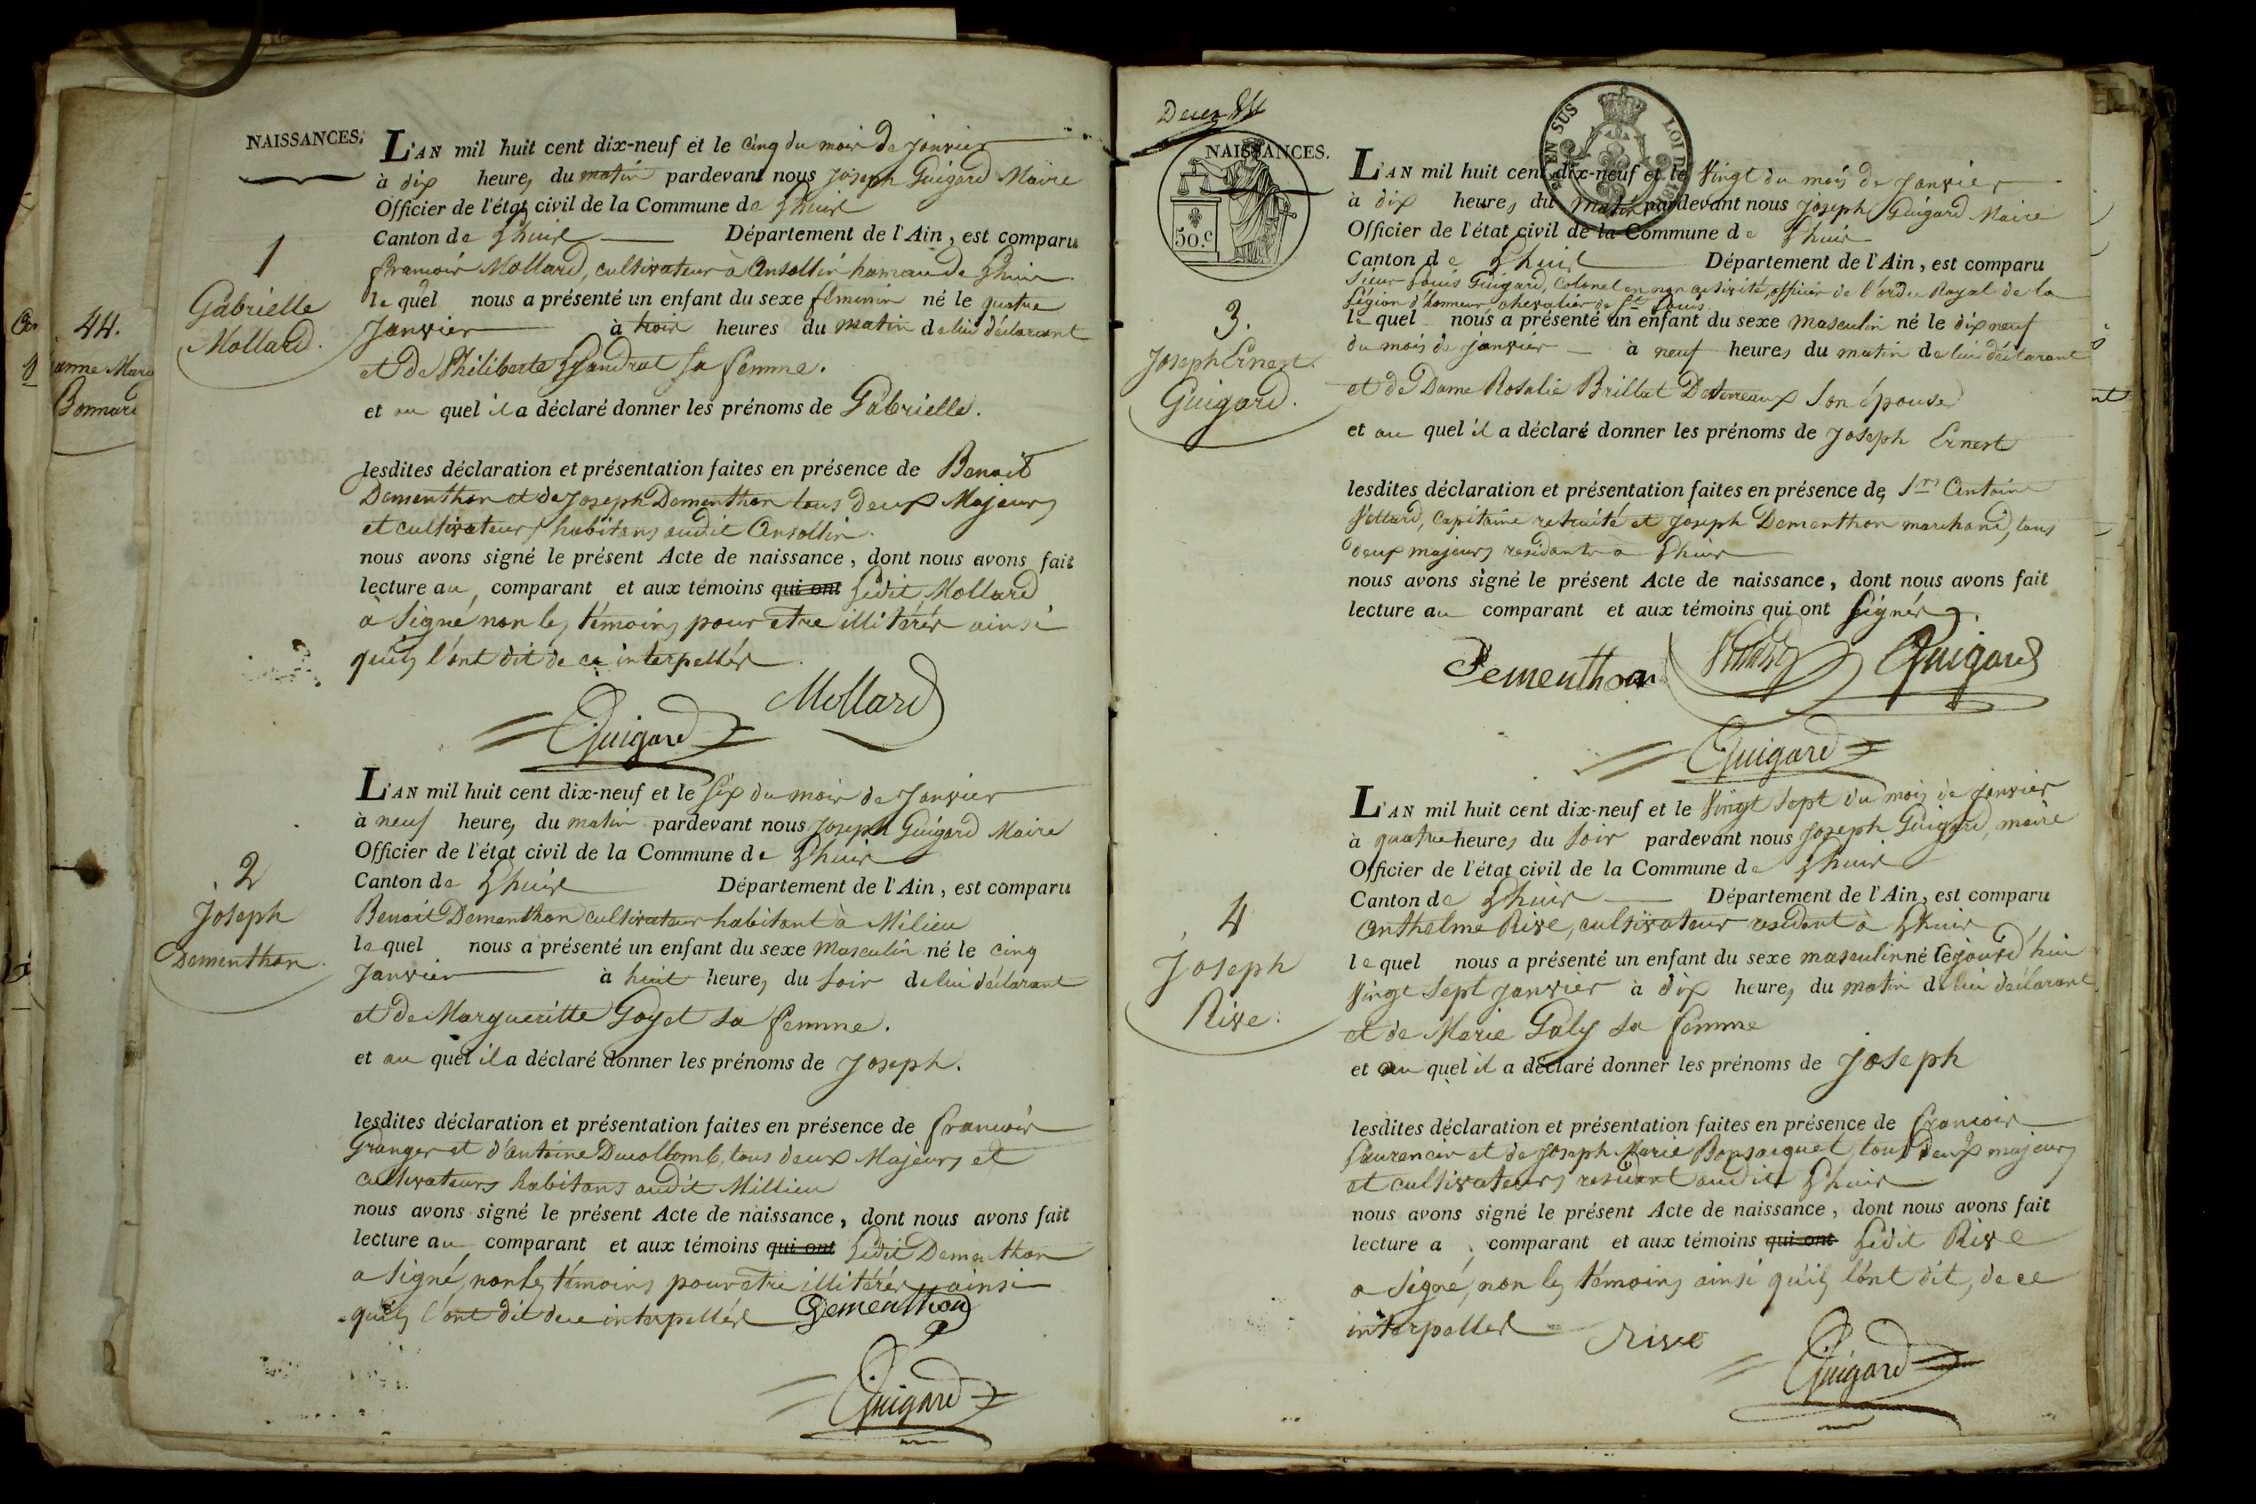 NAISSANCES.
44.
Bonnard
1
Gabrielle
Mollard.
L'AN mil huit cent dix-neuf et le cinq du mois de Janvier
à dix heures du matin pardevant nous Joseph Guigard Maire
Officier de l'état civil de la Commune de Lhuis
Canton de Lhuis Département de l'Ain, est comparu
François Mollard, cultivateur à Ansollin hamau de Lhuis
le quel nous a présenté un enfant du sexe féminin né le quatre
Janvier à trois heures du matin de lui déclarant
et de Philiberte sa femme.
et au quel il a déclaré donner les prénoms de Gabrielle.
lesdites déclaration et présentation faites en présence de Benoit
Dementhon et de Joseph Dementhon tous deux Majeurs
et cultivateurs habitans audit Ansollin.
nous avons signé le présent Acte de naissance, dont nous avons fait
lecture au comparant et aux témoins qui ont Ledit Mollard
a Signé non les témoins pour etre illitérés ainsi
qu'ils l'ont dit de ce interpellés
Mollard
Guigard
2
Joseph
Dementhon.
L'AN mil huit cent dix-neuf et le six du mois de Janvier
à neuf heures du matin pardevant nous Joseph Guigard Maire
Officier de l'état civil de la Commune de Lhuis
Canton de Lhuis Département de l'Ain, est comparu
Benoit Dementhon cultivateur habitant à Milieu
le quel nous a présenté un enfant du sexe Masculin né le cinq
Janvier à huit heures du soir de lui déclarant
et de Margueritte Goyet sa femme.
et au quel il a déclaré donner les prénoms de Joseph.
lesdites déclaration et présentation faites en présence de François
Granger et d'antoine Ducollomb, tous deux Majeurs et
cultivateurs habitans audit Millieu
nous avons signé le présent Acte de naissance, dont nous avons fait
lecture au comparant et aux témoins qui ont Ledit Dementhon
a Signé, non les témoins pour etre illitérés ainsi
qu'ils l'ont dit de ce interpellés Dementhon
Guigard
EN SUS
LOI DE
50.c
NAISSANCES.
3.
Joseph Ernest
Guigard.
L'AN mil huit cent dix-neuf et le Vingt du mois de Janvier
à dix heures du matin pardevant nous Joseph Guigard Maire
Officier de l'état civil de la Commune de Lhuis
Canton de Lhuis Département de l'Ain, est comparu
Sieur Louis Guigard, Colonel en non activité, officier de l'ordre Royal de la
Légion d'honneur chevalier de St. Louis
le quel nous a présenté un enfant du sexe masculin né le dix neuf
du mois de janvier à neuf heures du matin de lui déclarant
et de Dame Rosalie Brillat son épouse
et au quel il a déclaré donner les prénoms de Joseph Ernest
lesdites déclaration et présentation faites en présence de Srs Antoine
Vettard, Capitaine retraité et Joseph Dementhon marchand, tous
deux majeurs residants a Lhuis
nous avons signé le présent Acte de naissance, dont nous avons fait
lecture au comparant et aux témoins qui ont Signés.
Dementhon Guigard
Guigard
4
Joseph
Rive.
L'AN mil huit cent dix-neuf et le Vingt Sept du mois de Janvier
à quatre heures du soir pardevant nous Joseph Guigard, maire
Officier de l'état civil de la Commune de Lhuis
Canton de Lhuis Département de l'Ain, est comparu
Anthelme Rive, cultivateur residant à Lhuis
le quel nous a présenté un enfant du sexe masculin né cejourd'hui
Vingt Sept janvier à dix heures du matin de lui déclarant
et de Marie Galy sa femme
et au quel il a déclaré donner les prénoms de Joseph
lesdites déclaration et présentation faites en présence de François
Laurencin et de Joseph Marie tous deux majeurs
et cultivateurs residant audit Lhuis
nous avons signé le présent Acte de naissance, dont nous avons fait
lecture a comparant et aux témoins qui ont Ledit Rive
a Signé, non les témoins ainsi qu'ils l'ont dit, de ce
interpellés Rive
Guigard